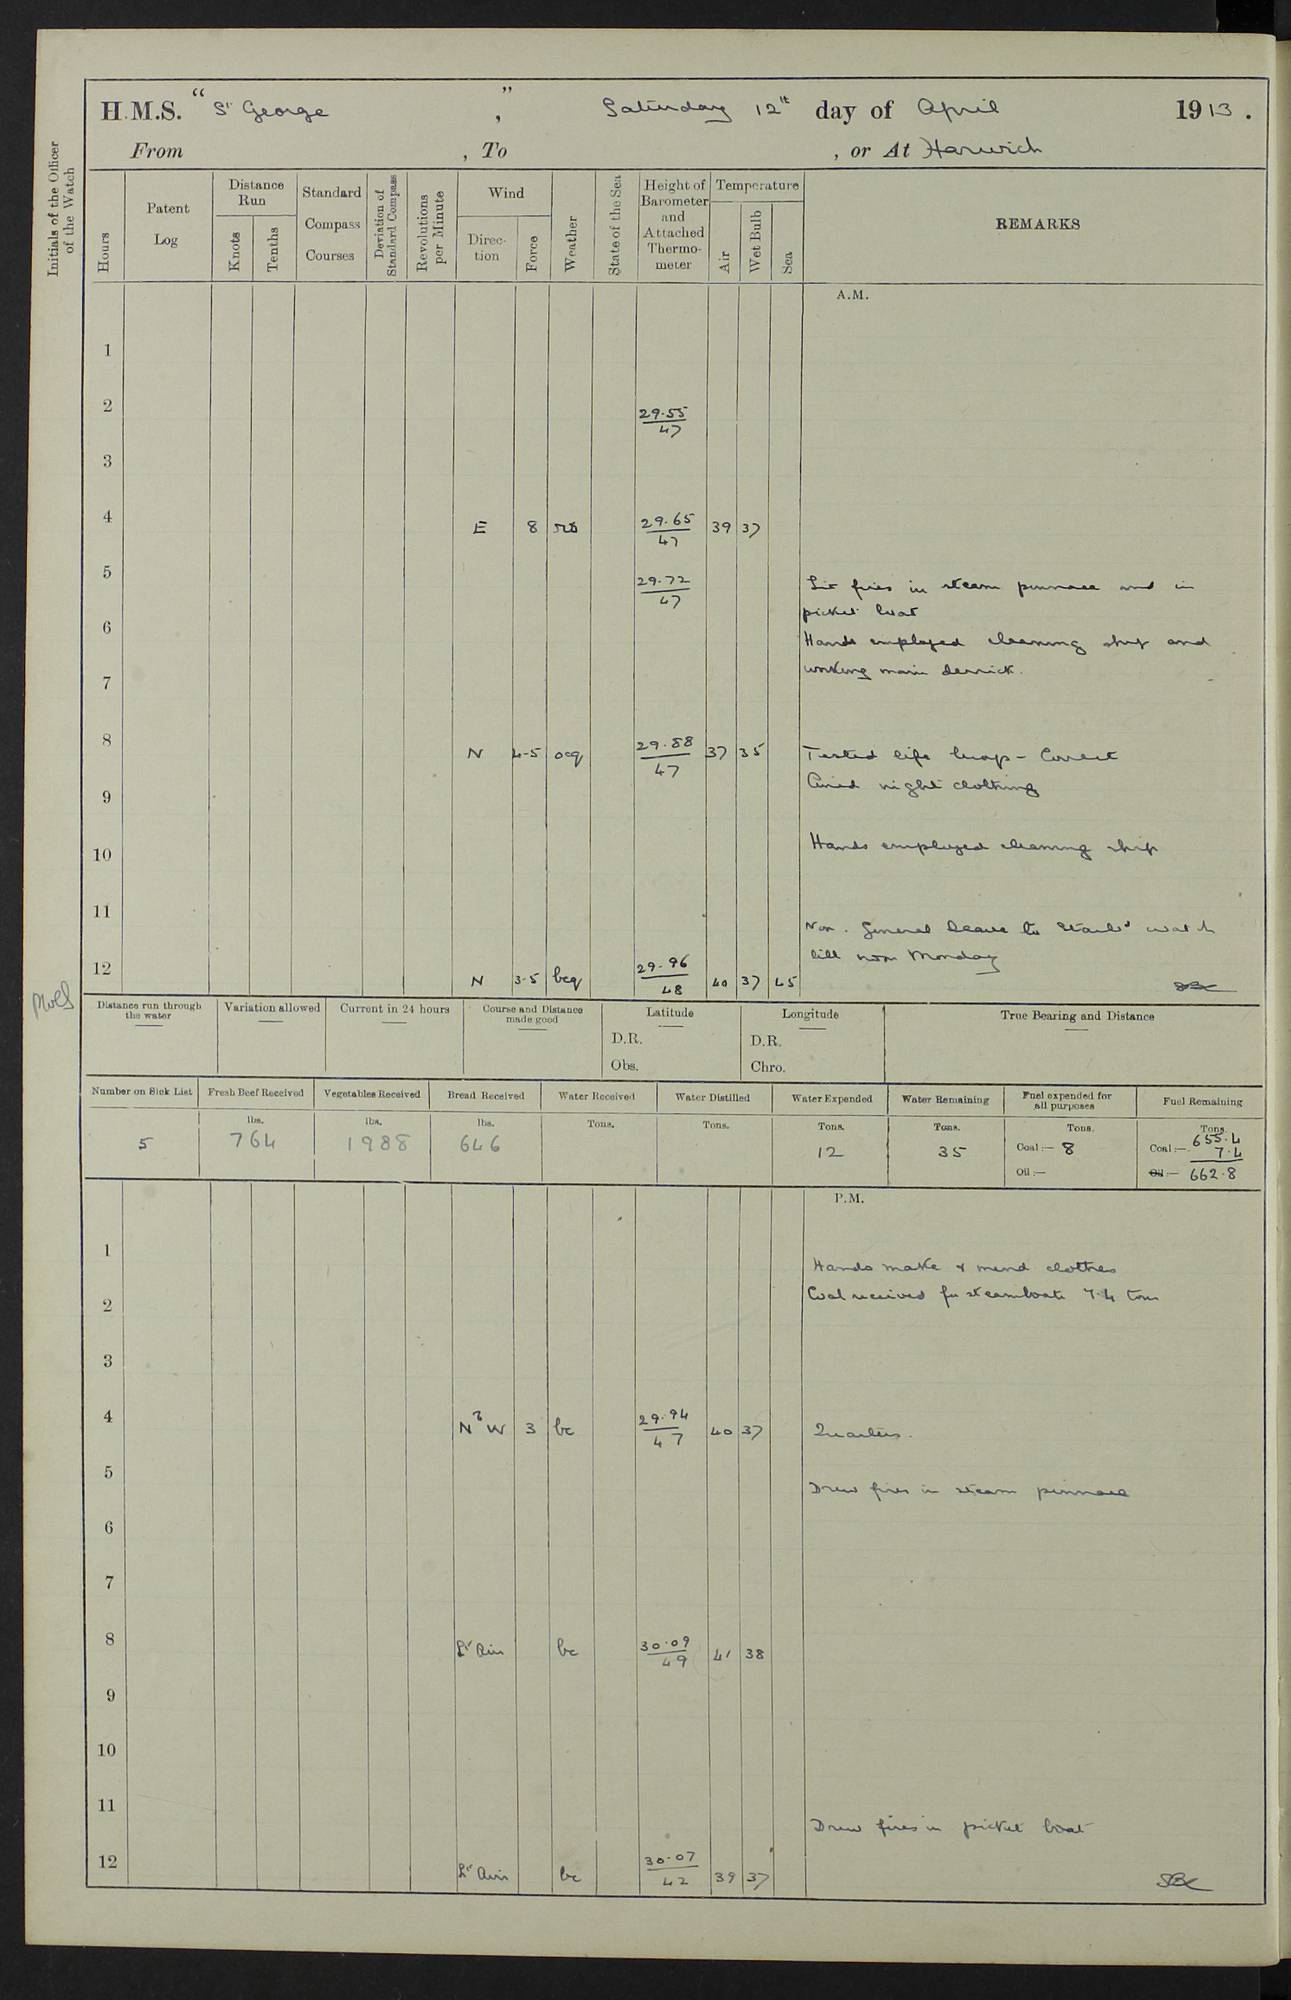 H.M.S. "St George", Saturday 12th day of April 1913.
From , To , or At Harwich
Initials of the Officer of the Watch
Hours
Patent Log
Distance Run
Knots
Tenths
Standard Compass Courses
Deviation of Standard Compass
Revolutions per Minute
Wind
Direction
Force
Weather
State of the Sea
Height of Barometer and Attached Thermometer
Temperature
Air
Wet Bulb
Sea
REMARKS
A.M.
1
2 29.55/47
3
4 E 8 29.65/47 39 37
5 29.72/47 Lit fires in steam pinnace and in
picket boat
6 Hands employed cleaning ship and
working main derrick.
7
8 N 4-5 ocq 29.88/47 37 35 Tested life buoys - Correct
Aired night clothing
9
10 Hands employed cleaning ship
11
Non. General leave to Starbd watch
till noon Monday
12 N 3-5 bcq 29.96/48 40 37 45
Distance run through the water
Variation allowed
Current in 24 hours
Course and Distance made good
Latitude
D.R.
Obs.
Longitude
D.R.
Chro.
True Bearing and Distance
Number on Sick List
Fresh Beef Received
Vegetables Received
Bread Received
Water Received
Water Distilled
Water Expended
Water Remaining
Fuel expended for all purposes
Fuel Remaining
5
lbs. 764
lbs. 1988
lbs. 646
Tons.
Tons.
Tons. 12
Tons. 35
Tons.
Coal:— 8
Oil:—
Tons.
Coal:— 655.4
7.4
Oil:— 662.8
P.M.
1
Hands make & mend clothes
2 Coal received for steamboats 7.4 tons
3
4 N b W 3 bc 29.94/47 40 37 Quarters.
5 Drew fires in steam pinnace
6
7
8 Lt Airs bc 30.09/49 41 38
9
10
11
Drew fires in picket boat
12 Lt Airs bc 30.07/42 39 37